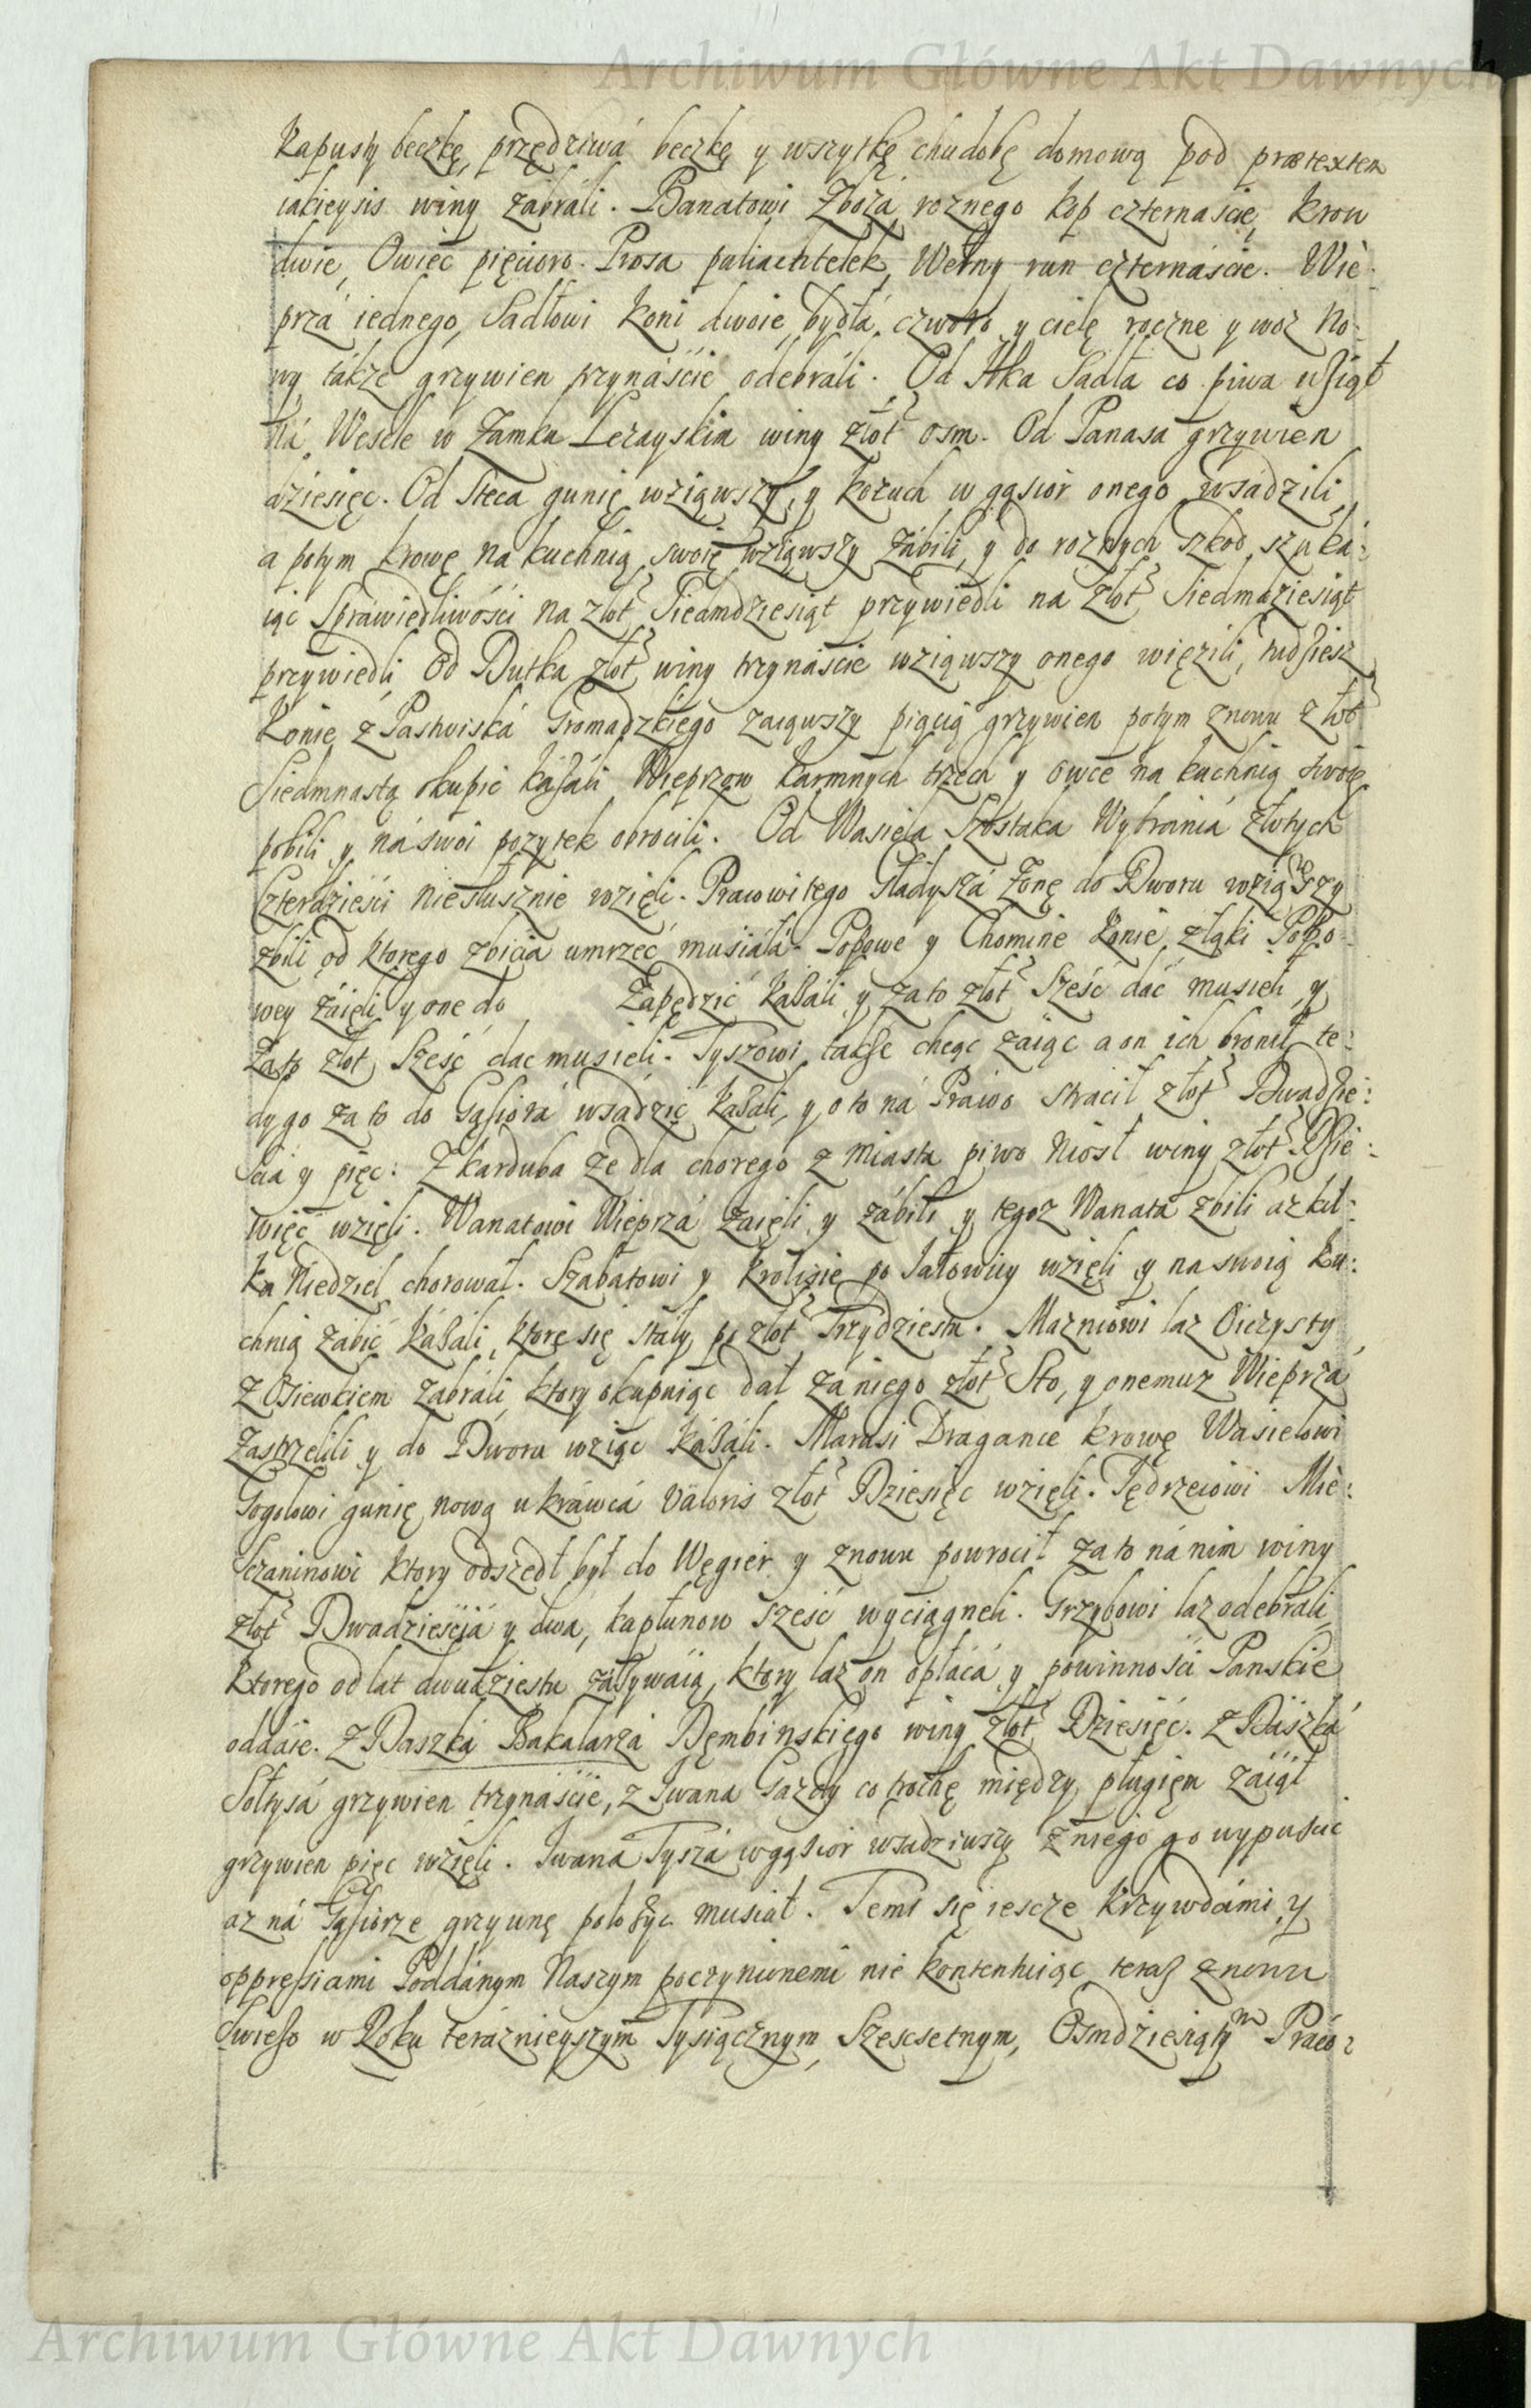 Archiwum Główne Akt Dawnych
Kapusty beczkę, przędziwá beczkę y wszytkę chudobę domową pod prætextem
iakieysis winy zábráli. Banatowi Zbożá roznego kop czternaście, krow
dwie, Owiec pięcioro. Prosa puliachtelek, Wełny run czternaście. Wie-
przá iednego, Sadłowi koni dwoie, bydłá czworo y cielę roczne y woz no:
wy tákże grzywien trzynáście odebráli. Od Ilka Sadła co piwa wźiął
ná Wesele w Zamku Leżayskim winy złot osm. Od Panasa grzywien
dziesięc. Od Steca gunię wziąwszy, y kożuch w gąsior onego wsadzili,
a potym krowę na kuchnią swoię wziąwszy zábili, y do roznych szkod szuká:
iąc Spráwiedliwości na złot Siedmdziesiąt przywiedli na złot Siedmdziesiąt
przywiedli Od Dutka złot winy trzynáście wziąwszy onego więzili, tudźiesz
Konie z Pastwiská Gromadzkiego zaiąwszy piącią grzywien potym znowu złot
Siedmnastą okupić káźáli Wieprzow karmnych trzech y owce na kuchnią swoię
pobili y ná swoi pozytek obrocili. Od Wasiela Szostaka Wybráńiá złotych
Czterdzieści niesłusznie wzięli. Pracowitego Gładyszá Żonę do Dworu wziąwszy
zbili od ktorego zbicia umrzeć musiáłá. Popowe y Chomine konie, z łąki Popo:
wey záięli y one do Zapędzić káźáli y za to złot Sześć dać musieli, y
Za to złot Sześć dac musieli. Tyszowi takźe chcąc zaiąc a on ich bronił, te:
dy go za to do Gąsiorá wsádzić káźali, y o to ná Práwo stracił złot Dwadźie:
ścia y pięc: Z karduba ze dla chorego z Miasta piwo niosł winy złot Dźie:
więć wzięli. Wanatowi Wieprzá zaięli y zábili y tegoz Wanatá zbili az kil:
ka Niedziel chorował. Szabatowi y Krolisie po Jałowicy wzięli y na swoią ku:
chnią zábić káźáli, ktore się stały po złot Trzydziestu. Mazniowi laz Oiczysty
z Osiewkiem zabráli, ktory okupuiąc dał zá niego złot Sto, y onemuz Wieprzá
Zastrzelili y do Dworu wziąc káźáli. Marusi Dragance krowę Wasielowi
Gogolowi gunię nową u kráwcá valoris złot Dziesięc wzięli. Jędrzeiowi Mie:
sczaninowi ktory odszedł był do Węgier y znowu powrocił za to ná nim winy
złot Dwadzieściá y dwá, kapłunow sześć wyciągneli. Grzybowi laz odebráli,
ktorego od lat dwudziestu záźywáią, ktory laz on opłácá y powinności Panskie
oddáie. Z Daszká Bakałarzá Dęmbinskiego winy złot Dziesięć. Z Daszká
Sołtysá grzywien trzynáście, z Iwana Gazdy co trochę między pługiem záiął
grzywien pięc wzięli. Iwana Tyszá w gąsior wsadziwszy z niego go wypuścic
az ná Gąsiorze grzywnę położyc musiał. Temi się iescze krzywdámi y
oppressiami Poddánym Naszym poczynionemi nie kontentuiąc teraz znowu
Swieźo w Roku teráznieyszym Tysiącznym, Szescsetnym, Osmdziesiątym Práco:
Archiwum Główne Akt Dawnych